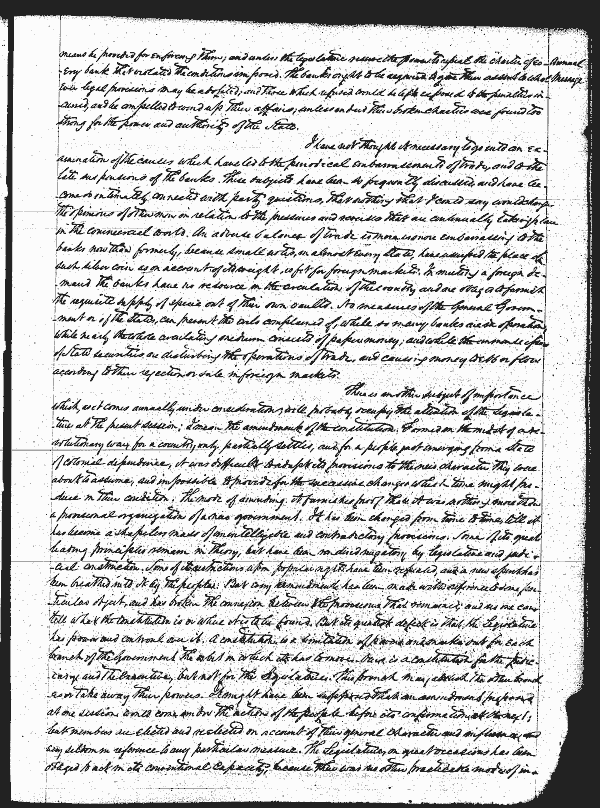 means be provided for enforcing them; and unless the legislature reserve the power to repeal the charter of ev- Annual
ery bank that violated the conditions imposed. The banks ought to be required to give their assent to what Message
ever legal provisions may be adopted; and those which refused could be left exposed to the penalties in-
curred, and be compelled to wind up their affairs; unless indeed their broken charters are found too
strong for the power and authority of the State.
I have not thought it necessary to go into an ex-
amination of the causes which have led to the periodical embarrassments of trade, and to the
late suspensions of the banks. These subjects have been so frequently discussed, and have be-
come so intimately connected with party questions, that nothing that I could say would change
the opinions of other men in relation to the pressures and
in the commercial world. An adverse balance of trade is more embarrassing to the
banks now than formerly, because small notes, in almost every State, have usurped the place of
such silver coin as on account of its weight, is fit for foreign markets. In meeting a foreign de-
mand the banks have no resource in the circulation of the country and are obliged to furnish
the requisite supply of specie out of their own vaults. No measures of the General Govern-
ment or of the States, can prevent the evils complained of while so many banks are in operation
while nearly the whole circulating medium consists of paper money; and while the immense
of State securities are disturbing the operations of trade, and causing money to ebb or flow
according to their rejection or sale in foreign markets.
There is another subject of importance
which, as it comes annually under consideration, will probably occupy the attention of the Legisla-
ture at the present session; I mean the amendment of the constitution. Formed in the midst of a re-
volutionary war, for a country, only partially settled, and for a people just emerging from a state
of colonial dependence, it was difficult to adapt its provisions to the new character they were
about to assume, and impossible to provide for the successive changes which time might pro-
duce in their condition. The mode of amending it furnishes proof that it was nothing more than
a provisional organization of a new government. It has been changed from time to time, till it
has become a shapeless mass of unintelligible and contradictory provisions. Some of its great
leading principles remain in theory, but have been rendered nugatory by legislative and judi-
cial construction. Some of its restrictions upon popular rights have been repealed, and a new spirit has
been breathed into it by the people. But every amendment has been made with reference to some par-
ticular object, and has broken the connexion between the provisions that remained; and no one can
tell what the constitution is or where it is to be found. But its greatest defect is that the Legislature
has power and control over it. A constitution is a limitation of powers and marks out for each
branch of the Government the orbit in which it has to move. Ours is a constitution for the judi-
ciary and the Executive, but not for the Legislature. This branch may abolish the other branches
or take away their powers. It might have been supposed that an amendment proposed
at one session, would come under the action of the people before its confirmation at the next;
but members are elected and reelected on account of their general character and influence, and
very seldom in reference to any particular measure. The Legislature, on great occasions has been
obliged to act in its conventional capacity, because there was no other practicable mode of in-